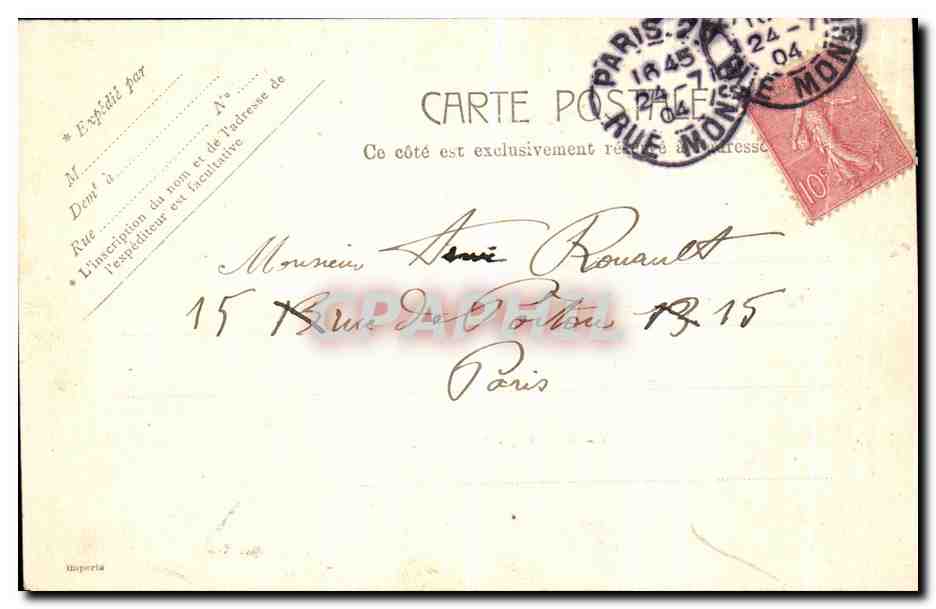 * Expédié par
M.
Dem.t à
Rue N°
* L'inscription du nom et de l'adresse de
l'expéditeur est facultative
CARTE POSTALE
Ce côté est exclusivement réservé à l'adresse
PARIS
1645
24 - 7
04
RUE MONS
24 - 7
04
RUE MONS
10c
Monsieur Henri Rouault
15 13 rue de Poitou 13 15
Paris
CPAPHIL